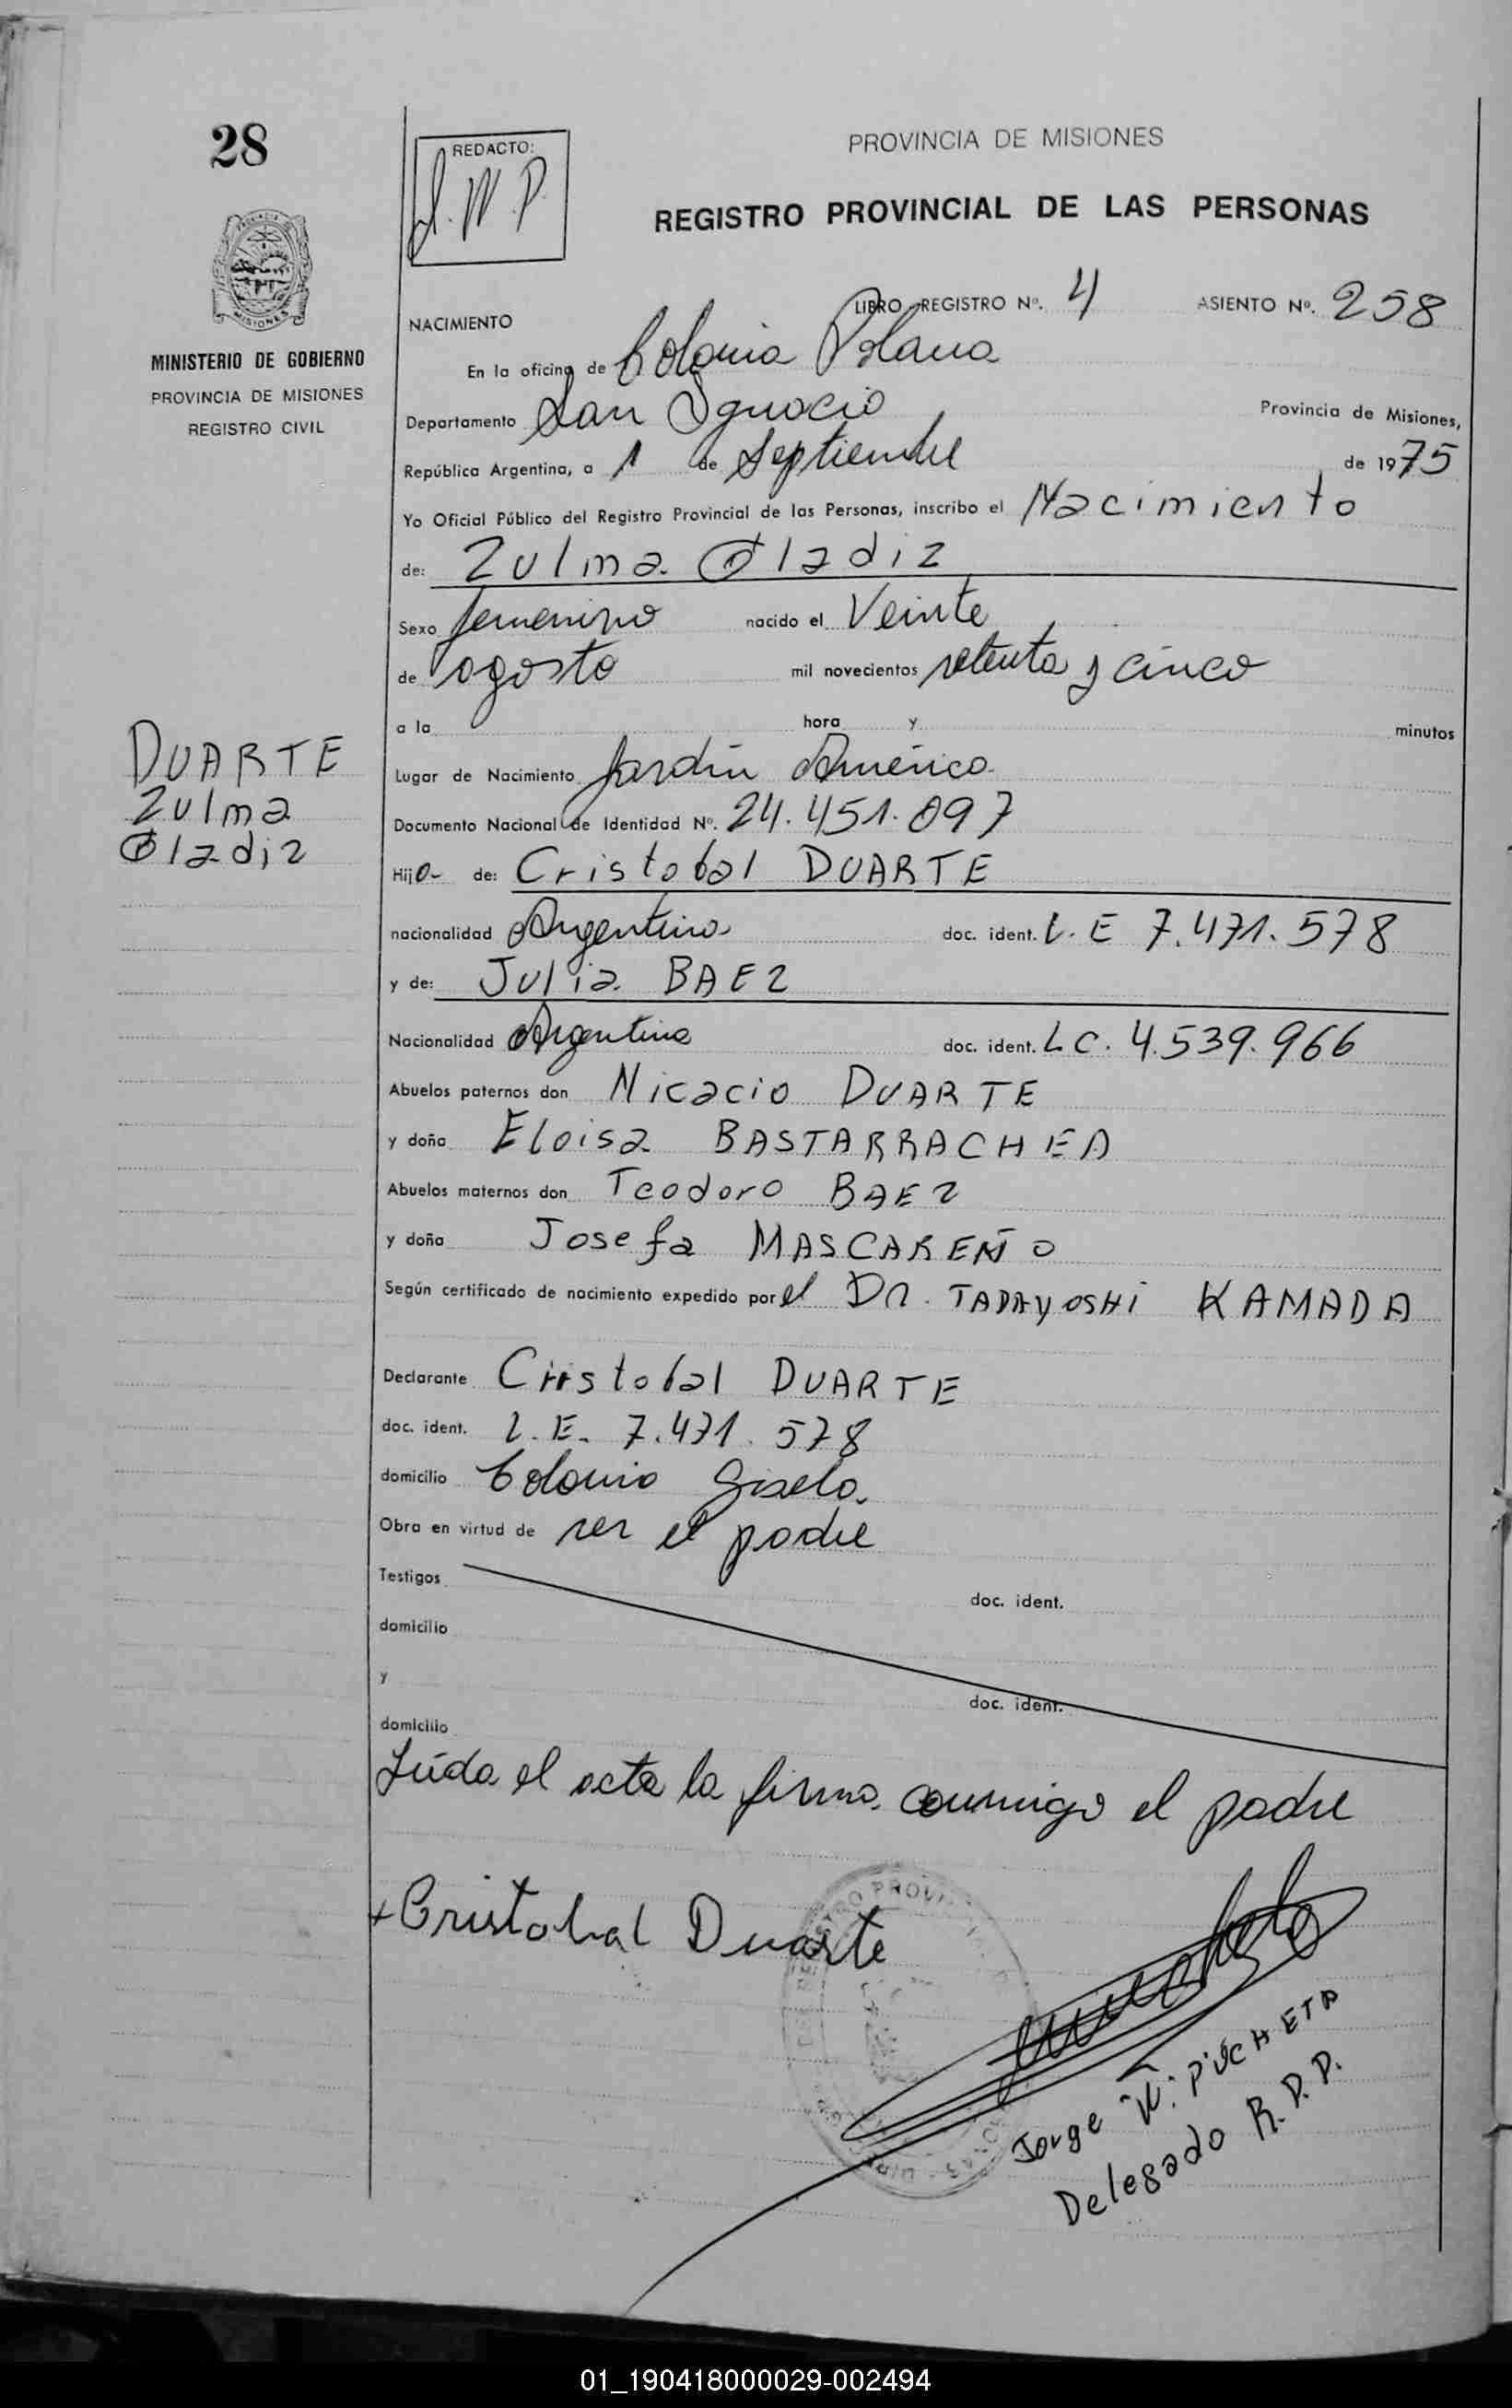 28
REDACTO:
J.W.P.
PROVINCIA DE MISIONES
REGISTRO PROVINCIAL DE LAS PERSONAS
MISIONES
MINISTERIO DE GOBIERNO
PROVINCIA DE MISIONES
REGISTRO CIVIL
LIBRO REGISTRO Nº. 4 ASIENTO Nº. 258
NACIMIENTO
En la oficina de Colonia Polana
Departamento San Ignacio Provincia de Misiones,
República Argentina, a 1 de Septiembre de 1975
Yo Oficial Público del Registro Provincial de las Personas, inscribo el Nacimiento
de: Zulma Gladiz
Sexo femenino nacido el Veinte
de agosto mil novecientos setenta y cinco
a la hora y minutos
DUARTE
Zulma
Gladiz
Lugar de Nacimiento Jardín América
Documento Nacional de Identidad Nº. 24.451.097
Hija de: Cristobal DUARTE
nacionalidad Argentina doc. ident. L.E 7.471.578
y de: Julia BAEZ
Nacionalidad Argentina doc. ident. LC. 4.539.966
Abuelos paternos don Nicacio DUARTE
y doña Eloisa BASTARRACHEA
Abuelos maternos don Teodoro BAEZ
y doña Josefa MASCAREÑO
Según certificado de nacimiento expedido por el Dr. TADAYOSHI KAMADA
Declarante Cristobal DUARTE
doc. ident. L.E. 7.471.578
domicilio Colonia Gisela.
Obra en virtud de ser el padre
Testigos doc. ident.
domicilio
y doc. ident.
domicilio
Leída el acta la firma conmigo el padre
+Cristobal Duarte
Jorge W. PUCHETA
Delegado R.P.P.
01_190418000029-002494